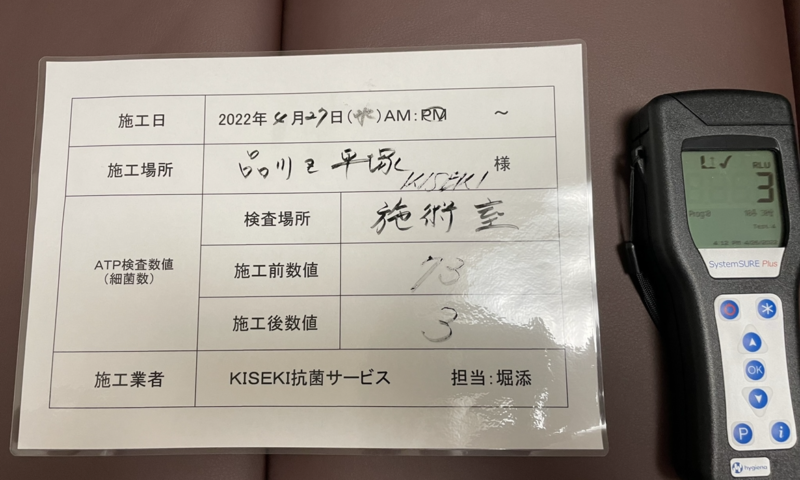 施工日 2022年4月27日(水)AM:PM ～
施工場所 品川区平塚 KISEKI 様
ATP検査数値
(細菌数)
検査場所 施術室
施工前数値 73
施工後数値 3
施工業者 KISEKI抗菌サービス 担当:堀添
RLU
3
SystemSURE Plus
OK
P
i
hygiena